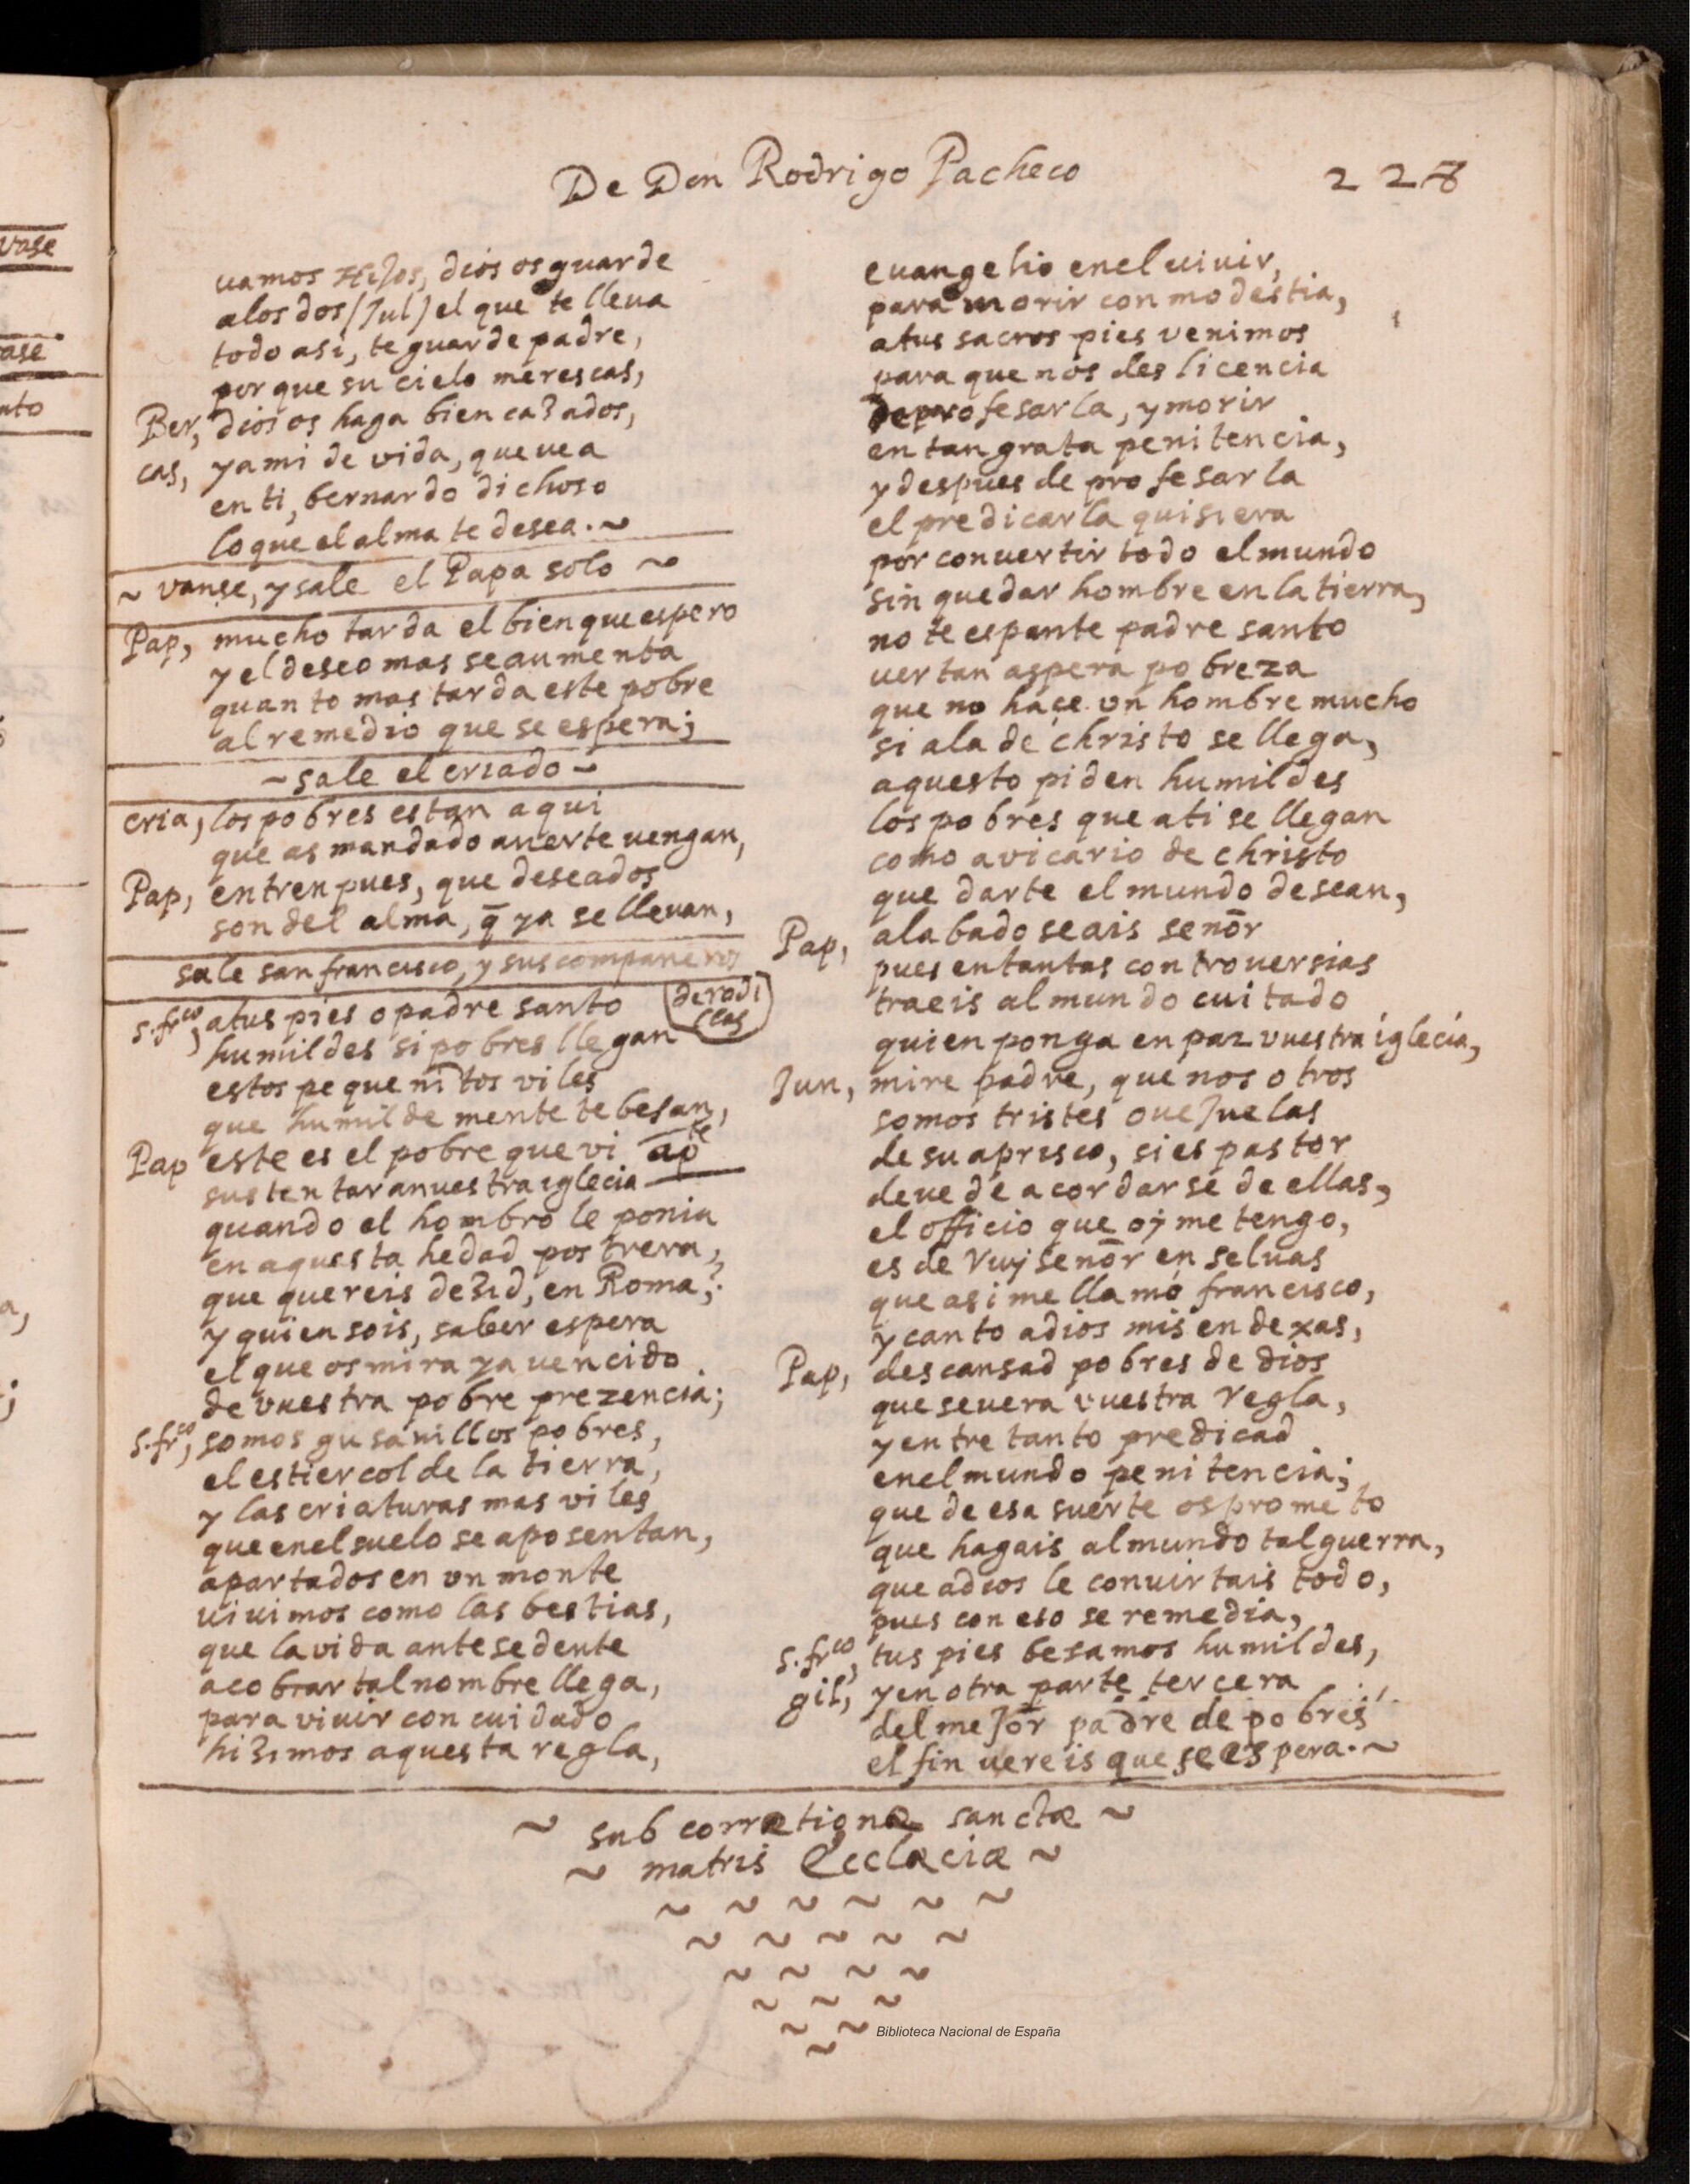 De Don Rodrigo Pacheco
228
vamos Hijos, dios os guarde
alos dos (Jul) el que te lleua
todo asi, te guarde padre,
por que su cielo merescas,
Ber, dios os haga bien casados,
cas, y a mi de vida, que uea
en ti, bernardo dichoso
lo que el alma te desea. ~
~ vanse, y sale el Papa solo ~
Pap, mucho tarda el bien que espero
y el deseo mas se aumenta
quanto mas tarda este pobre
al remedio que se espera;
~ sale el criado ~
cria, los pobres estan aqui
que as mandado a uerte uengan,
Pap, entren pues, que deseados
son del alma, q̄ ya se lleuan,
sale san francisco, y sus compañeros
s. frco, atus pies o padre santo
de rodi
llas
humildes si pobres llegan
estos pequeñitos viles
que humilde mente te besan,
Pap este es el pobre que vi apte
sustentar a nuestra iglecia
quando el hombro le ponia
en aquesta hedad postrera,
que quereis desid, en Roma,?
y quien sois, saber espera
el que os mira ya uencido
de vuestra pobre prezencia;
s. frco, somos gusanillos pobres,
el estiercol de la tierra,
y las criaturas mas viles
que enel suelo se aposentan,
apartados en vn monte
uiuimos como las bestias,
que la vida antesedente
a cobrar tal nombre llega,
para viuir con cuidado
hisimos aquesta regla,
euangelio enel uiuir,
para morir con modestia,
atus sacros pies venimos
para que nos des licencia
de profesarla, y morir
en tan grata penitencia,
y despues de profesarla
el predicarla quisiera
por conuertir todo el mundo
sin quedar hombre en la tierra,
no te espante padre santo
uer tan aspera pobreza
que no hace vn hombre mucho
si ala de christo se llega,
aquesto piden humildes
los pobres que ati se llegan
como a vicario de christo
que darte el mundo desean,
Pap, alabado seais señor
pues en tantas controuersias
traeis al mundo cuitado
quien ponga en paz vuestra iglecia,
Jun, mire padre, que nosotros
somos tristes ouejuelas
de su aprisco, si es pastor
deue de acordarse de ellas,
el officio que oy me tengo,
es de Ruyseñor en seluas
que asi me llamó francisco,
y canto a dios mis endexas,
Pap, descansad pobres de dios
que se uera vuestra regla,
y entre tanto predicad
enel mundo penitencia;
que de esa suerte os prometo
que hagais al mundo tal guerra,
que a dios le convirtais todo,
pues con eso se remedia,
s. frco, tus pies besamos humildes,
gil, y en otra parte tercera
del mejor padre de pobres
el fin uereis que se espera. ~
~ sub corrætionæ sanctæ ~
~ matris Ecclæciæ ~
Biblioteca Nacional de España